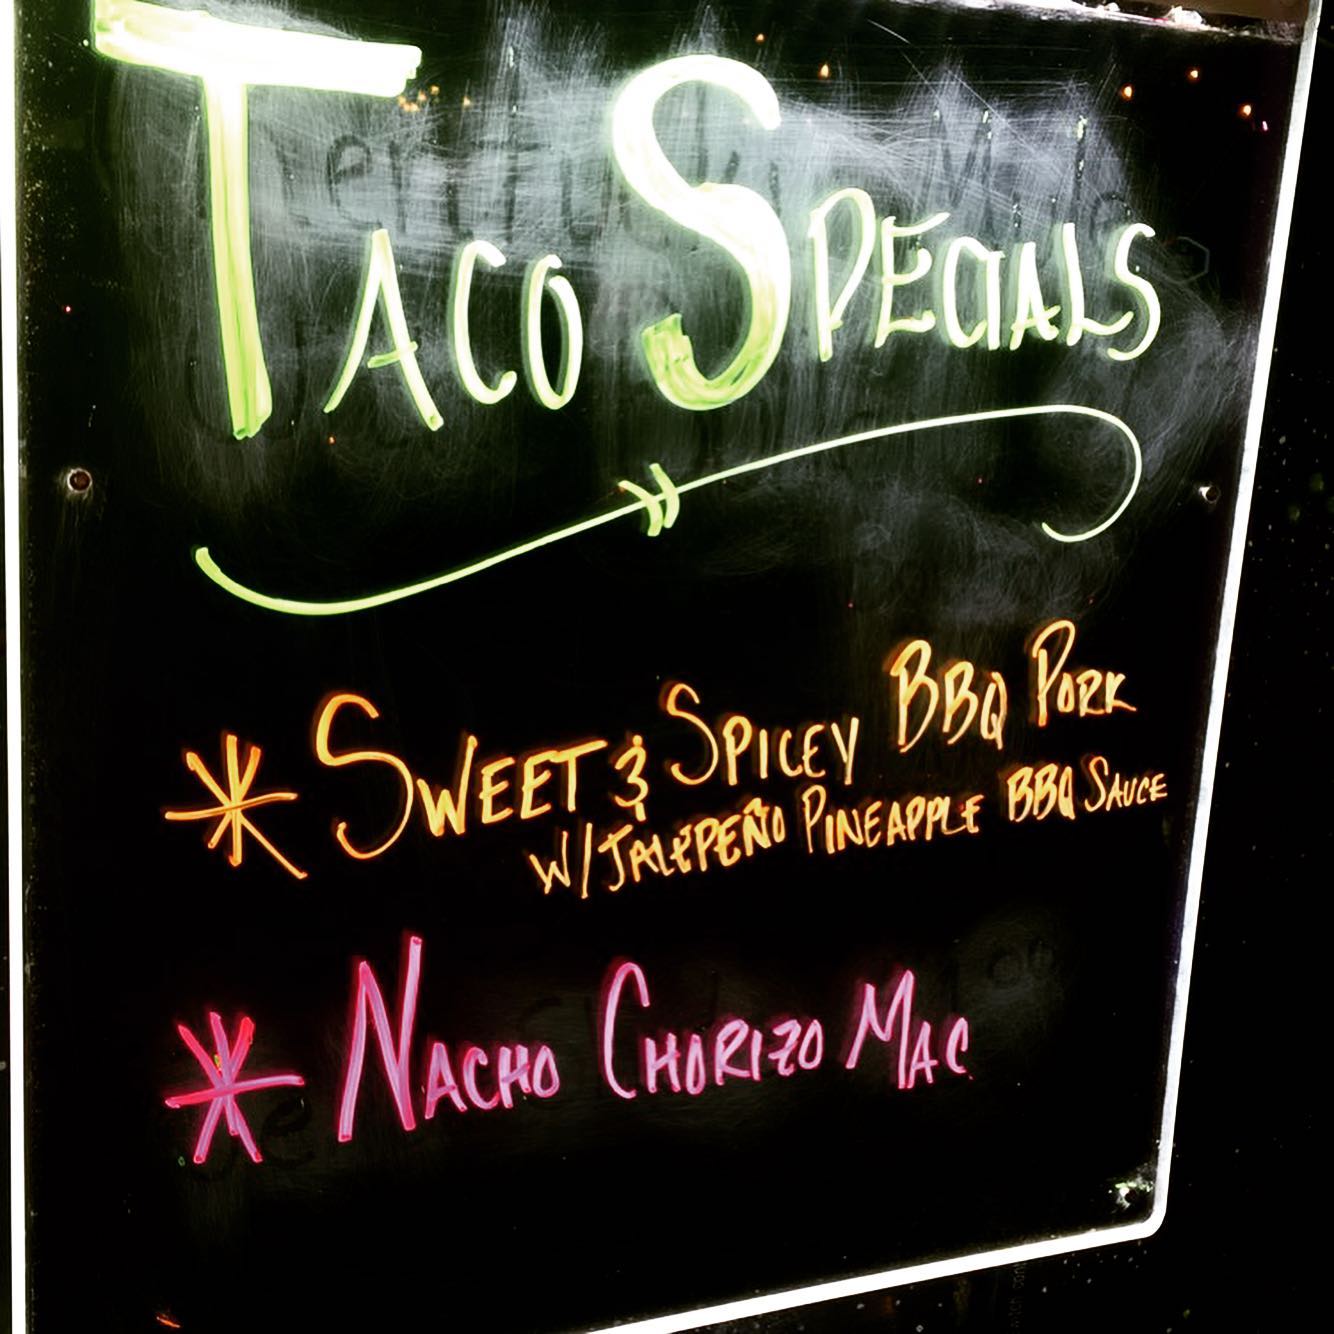 TACO SPECIALS
* SWEET & SPICEY BBQ PORK
W/JALEPEÑO PINEAPPLE BBQ SAUCE
* NACHO CHORIZO MAC